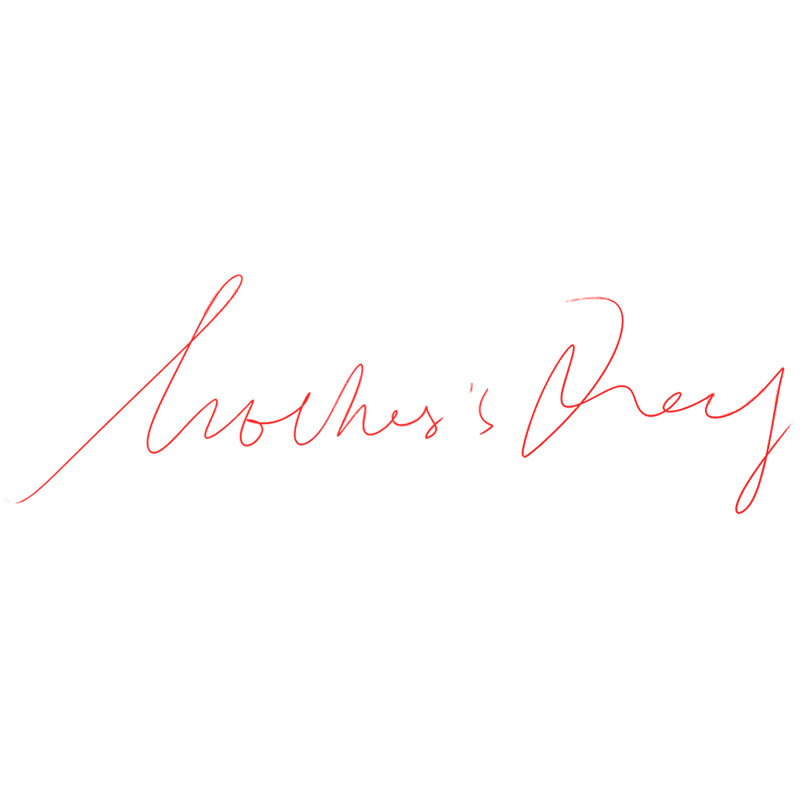 Mother's Day